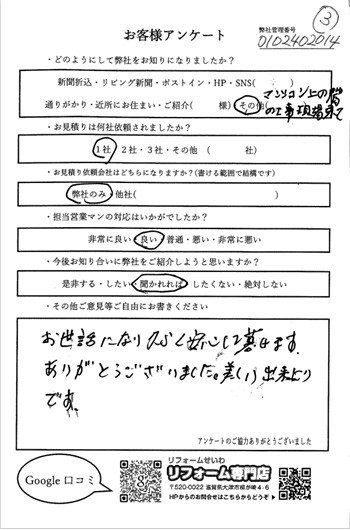 ③
お客様アンケート
弊社管理番号
0102402014
・どのようにして弊社をお知りになりましたか？
新聞折込・リビング新聞・ポストイン・HP・SNS(　　)
通りがかり・近所にお住まい・ご紹介(　　様) その他(マンション上の階
の工事現場を見て
・お見積りは何社依頼されましたか？
1社・2社・3社・その他（　　社）
・お見積り依頼会社はどちらになりますか？(書ける範囲で結構です)
弊社のみ・他社(　　)
・担当営業マンの対応はいかがでしたか？
非常に良い・良い・普通・悪い・非常に悪い
・今後お知り合いに弊社をご紹介しようと思いますか？
是非する・したい・聞かれれば・したくない・絶対しない
・その他ご意見等ご自由にお書きください
お世話になり 安心して暮せます。
ありがとうございました。美しい出来上り
です。
アンケートのご協力ありがとうございました
Google 口コミ
リフォームせいわ
リフォーム専門店
〒520-0022 滋賀県大津市柳が崎4-6
HPからのお問合せはこちらからどうぞ